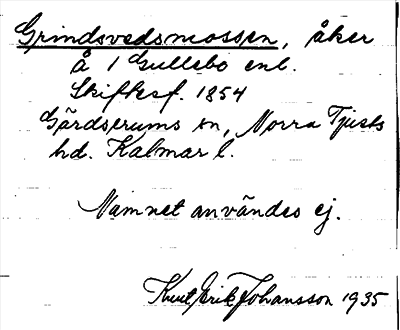 Grindsvedsmossen, åker
å 1 Gullebo enl.
Skifksf. 1854
Gärdserums sn, Norra Tjusts
hd. Kalmar l.
Namnet användes ej.
Knut Erik Johansson 1935